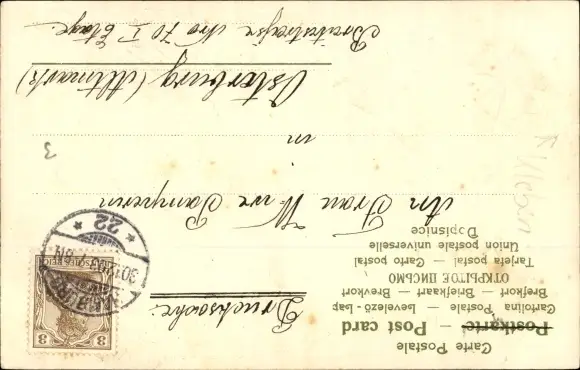 Carte Postale
Postkarte — Post card
Cartolina Postale — Levelező-Lap
Brefkort — Briefkaart — Brevkort
ОТКРЫТОЕ ПИСЬМО
Tarjeta postal — Carto postal
Union postale universelle
Dopisnice
Drucksache
3
3
DEUTSCHES REICH
22
An Frau Wwe
in
Osterburg (Altmark)
Breitestraße Nro 70 I Etage.
3